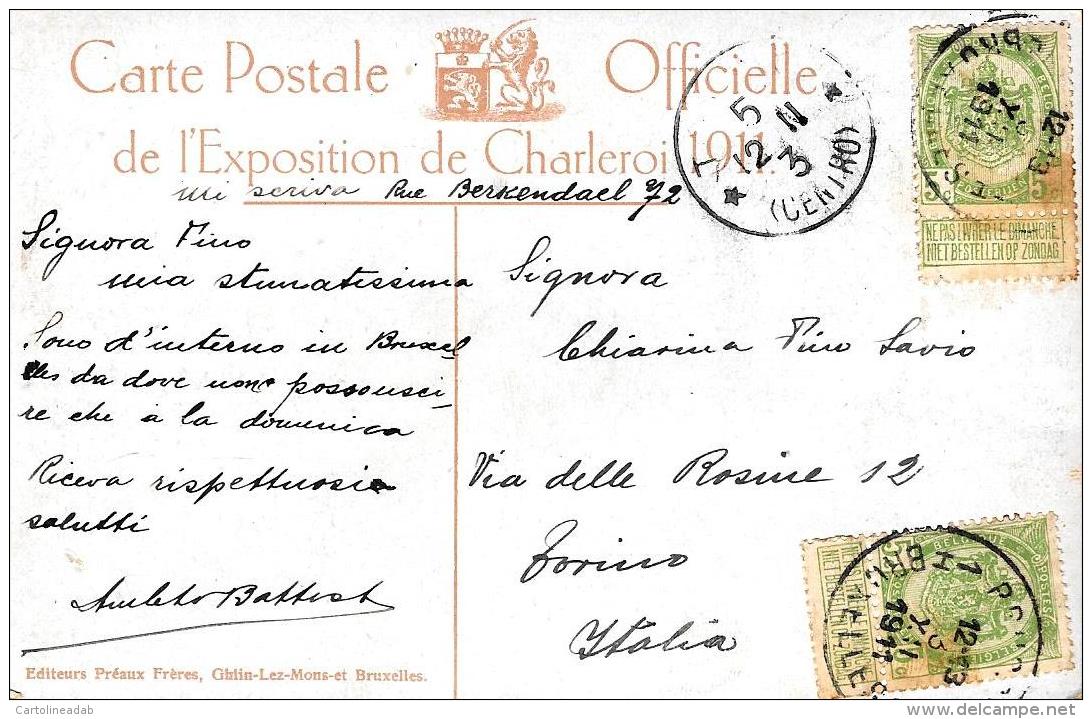 Carte Postale Officielle
de l'Exposition de Charleroi 1911.
mi scriva Rue Berkendael 72
Signora Fino
mia stimatissima
Sono d'interno in Bruxel
les da dove non possousci-
re che a la domenica
Riceva rispettuosi
salutti
Amleto Battist
Signora
Chiarina Fino Savio
Via delle Rosine 12
Torino
Italia
Editeurs Préaux Frères, Ghlin-Lez-Mons-et Bruxelles.
5
12 11
3
(CENTRO)
12-13
1911
5c 5c
NE PAS LIVRER LE DIMANCHE
NIET BESTELLEN OP ZONDAG
BELGIQUE
1911